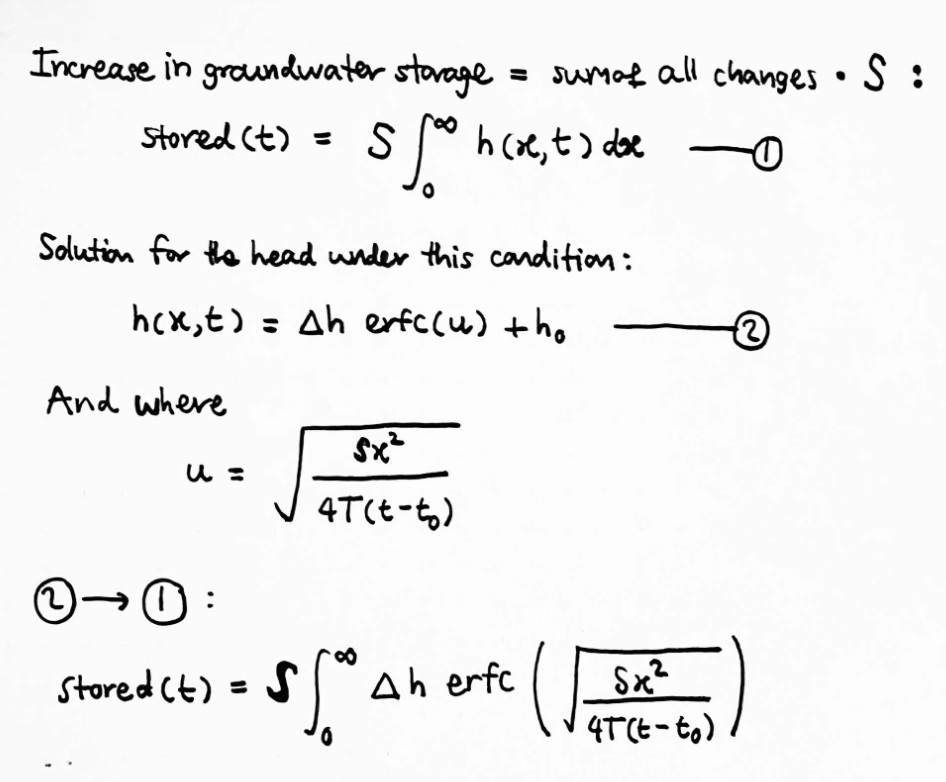 Increase in groundwater storage = sum of all changes • S :
stored (t) = S ∫₀^∞ h(x,t) dx —— ①
Solution for the head under this condition:
h(x,t) = Δh erfc(u) + h₀ —— ②
And where
u = √(Sx² / 4T(t-t₀))
② → ① :
stored (t) = S ∫₀^∞ Δh erfc (√(Sx² / 4T(t-t₀)))